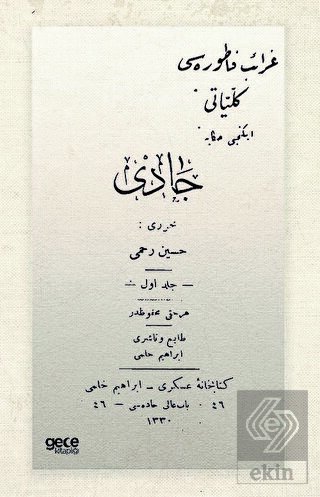 غرائب فاطوره‌سی
كلّیاتی
ایكنجی حكایه
جادی
محرری :
حسین رحمی
— جلد اول —
هر حقی محفوظدر
طابع و ناشری
ابراهیم حلمی
كتابخانهٔ عسكری – ابراهیم حلمی
٤٦ · باب عالی جاده‌سی – ٤٦
١٣٣٠
gece
kitaplığı
ekin